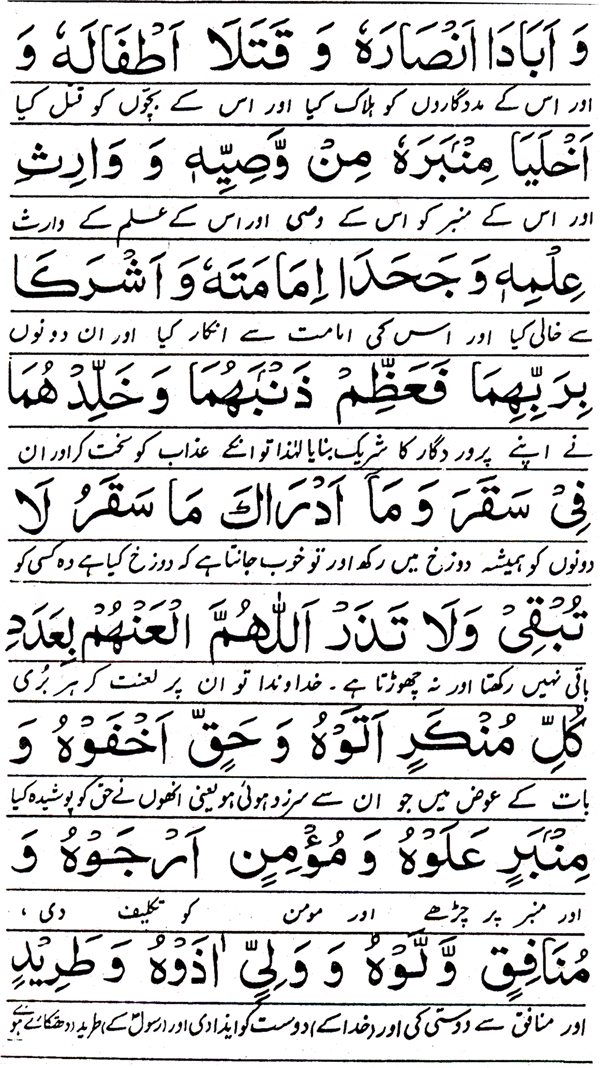 وَ اَبَادَا اَنْصَارَهٗ وَ قَتَلَا اَطْفَالَهٗ وَ
اور اس کے مددگاروں کو ہلاک کیا اور اس کے بچّوں کو قتل کیا
اَخْلَيَا مِنْبَرَهٗ مِنْ وَّصِيِّهٖ وَ وَارِثِ
اور اس کے منبر کو اس کے وصی اور اس کے علم کے وارث
عِلْمِهٖ وَ جَحَدَا اِمَامَتَهٗ وَ اَشْرَكَا
سے خالی کیا اور اس کی امامت سے انکار کیا اور ان دونوں
بِرَبِّهِمَا فَعَظِّمْ ذَنْبَهُمَا وَ خَلِّدْهُمَا
نے اپنے پروردگار کا شریک بنایا لہٰذا تو انکے عذاب کو سخت کر اور ان
فِیْ سَقَرَ وَ مَاۤ اَدْرَاكَ مَا سَقَرُ لَا
دونوں کو ہمیشہ دوزخ میں رکھ اور تو خوب جانتا ہے کہ دوزخ کیا ہے وہ کسی کو
تُبْقِیْ وَلَا تَذَرْ اَللّٰهُمَّ الْعَنْهُمْ بِعَدَدِ
باقی نہیں رکھتا اور نہ چھوڑتا ہے۔ خداوندا تو ان پر لعنت کر ہر بُری
كُلِّ مُنْكَرٍ اَتَوْهُ وَ حَقٍّ اَخْفَوْهُ وَ
بات کے عوض میں جو ان سے سرزد ہوئی ہو یعنی انھوں نے حق کو پوشیدہ کیا
مِنْبَرٍ عَلَوْهُ وَ مُؤْمِنٍ اَرْجَوْهُ وَ
اور منبر پر چڑھے اور مومن کو تکلیف دی ،
مُنَافِقٍ وَّلَّوْهُ وَ وَلِیٍّ اٰذَوْهُ وَ طَرِيْدٍ
اور منافق سے دوستی کی اور (خدا کے) دوست کو ایذا دی اور (رسولؐ کے) طرید (دھتکارے ہوئے